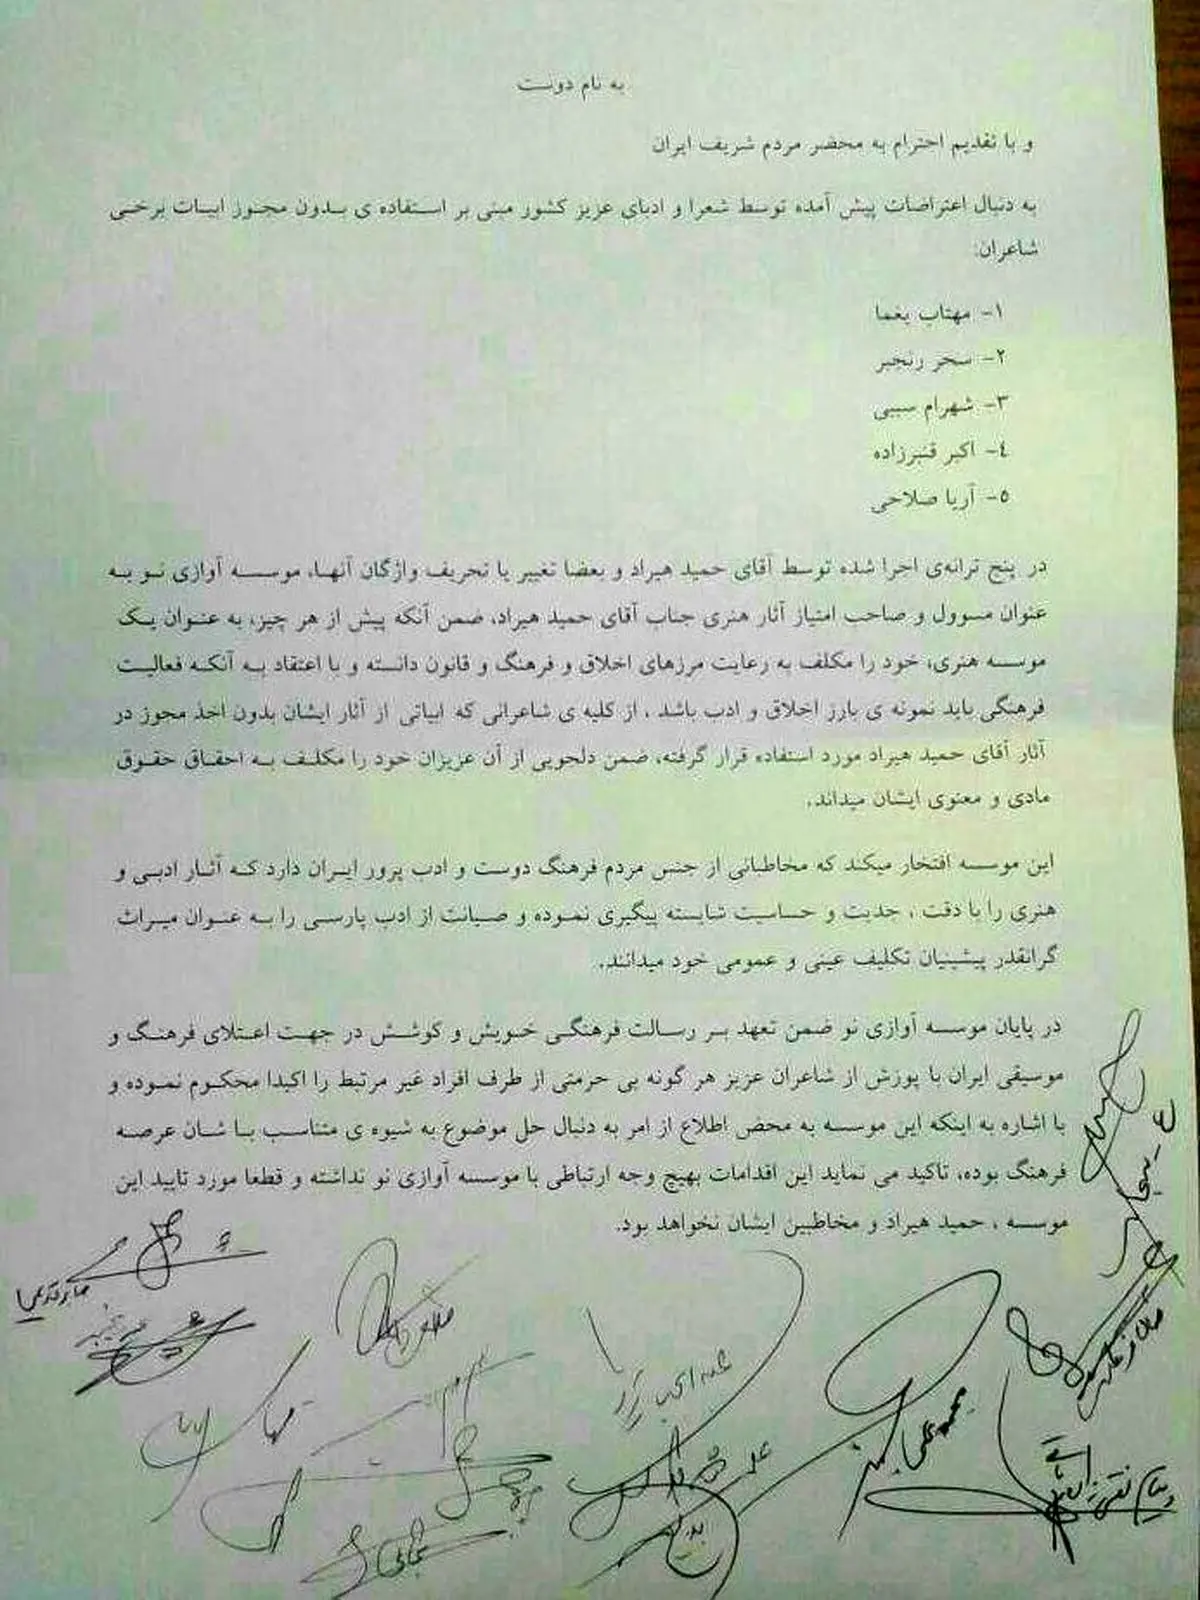 به نام دوست
و با تقدیم احترام به محضر مردم شریف ایران
به دنبال اعتراضات پیش آمده توسط شعرا و ادبای عزیز کشور مبنی بر استفاده ی بدون مجوز ابیات برخی
شاعران:
۱- مهتاب یغما
۲- سحر رنجبر
۳- شهرام سببی
٤- اکبر قنبرزاده
۵- آریا صلاحی
در پنج ترانه‌ی اجرا شده توسط آقای حمید هیراد و بعضا تغییر یا تحریف واژگان آنها، موسسه آوازی نو به
عنوان مسوول و صاحب امتیاز آثار هنری جناب آقای حمید هیراد، ضمن آنکه پیش از هر چیز، به عنوان یک
موسسه هنری، خود را مکلف به رعایت مرزهای اخلاق و فرهنگ و قانون دانسته و با اعتقاد به آنکه فعالیت
فرهنگی باید نمونه ی بارز اخلاق و ادب باشد ، از کلیه ی شاعرانی که ابیاتی از آثار ایشان بدون اخذ مجوز در
آثار آقای حمید هیراد مورد استفاده قرار گرفته، ضمن دلجویی از آن عزیزان خود را مکلف به احقاق حقوق
مادی و معنوی ایشان میداند.
این موسسه افتخار میکند که مخاطبانی از جنس مردم فرهنگ دوست و ادب پرور ایران دارد که آثار ادبی و
هنری را با دقت ، جدیت و حساسیت شایسته پیگیری نموده و صیانت از ادب پارسی را به عنوان میراث
گرانقدر پیشینیان تکلیف عینی و عمومی خود میدانند.
در پایان موسسه آوازی نو ضمن تعهد بر رسالت فرهنگی خویش و کوشش در جهت اعتلای فرهنگ و
موسیقی ایران با پوزش از شاعران عزیز هر گونه بی حرمتی از طرف افراد غیر مرتبط را اکیدا محکوم نموده و
با اشاره به اینکه این موسسه به محض اطلاع از امر به دنبال حل موضوع به شیوه ی متناسب با شان عرصه
فرهنگ بوده، تاکید می نماید این اقدامات بهیچ وجه ارتباطی با موسسه آوازی نو نداشته و قطعا مورد تایید این
موسسه ، حمید هیراد و مخاطبین ایشان نخواهد بود.
صابر قدیمی
محمدعلی